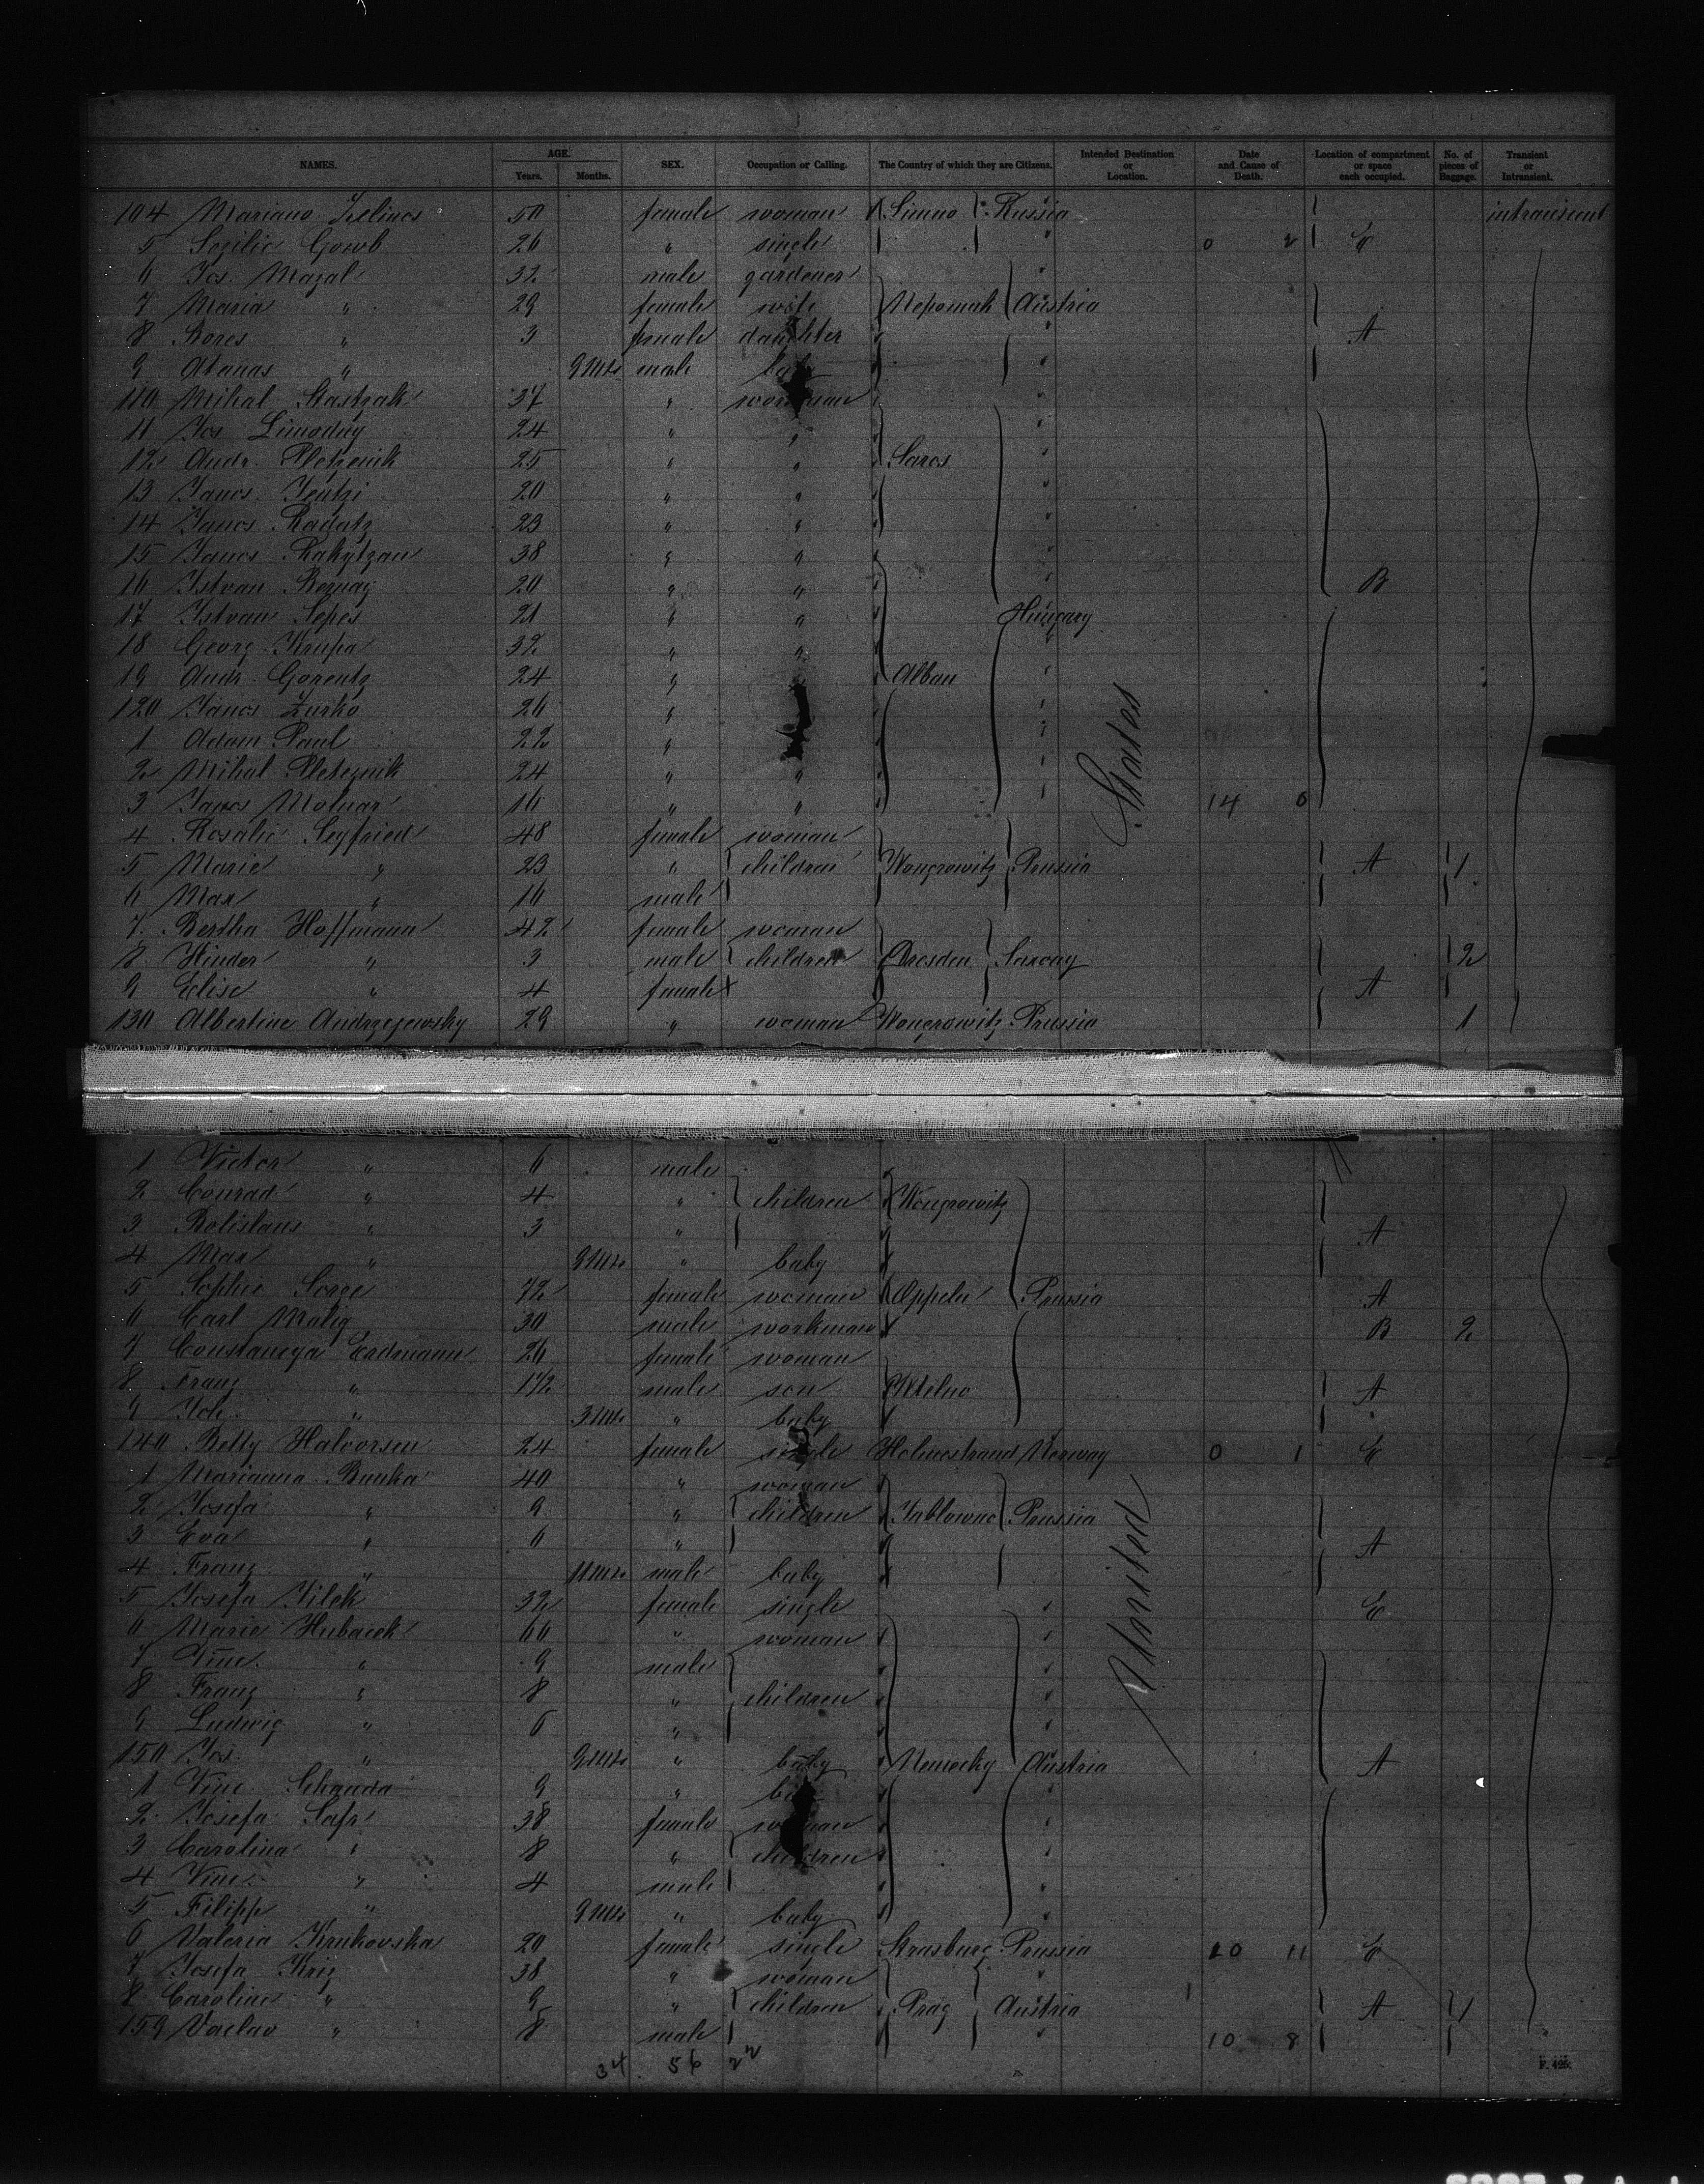 NAMES. AGE. Years. Months. SEX. Occupation or Calling. The Country of which they are Citizens. Intended Destination or Location. Date and Cause of Death. Location of compartment or space each occupied. No. of pieces of Baggage. Transient or Intransient.
104 Mariano 50 female woman Simno Russia intransient
5 Gowb 26 " single " 0 2 E
6 Jos. Mazal 32 male gardener "
7 Maria " 29 female wife Nepomuk Austria
8 " 3 female daughter " A
9 Atanas " 9 Mts male baby "
110 Mihal Stastzak 37 " workman "
11 Jos 24 " " "
12 Andr. Pletzenik 25 " " Saros "
13 Janos 20 " " "
14 Janos Radatz 23 " " "
15 Janos 38 " " "
16 Istvan 20 " " " B
17 Istvan Sepes 21 " " Hungary
18 Georg Krupa 32 " "
19 Andr. Gorentz 24 " " Alban "
120 Janos Zurko 26 " "
1 Adam Paul 22 " "
2 Mihal Pleteznik 24 " "
3 Janos Molnar 16 " " 14 0
4 Rosalie Segfried 48 female woman
5 Marie " 23 " children Wongrowitz Prussia A 1
6 Max " 16 male
7 Bertha Hoffmann 42 female woman
8 " 3 male children Dresden Saxony 2
9 Elise " 4 female A
130 Albertine Andrzejewsky 29 " woman Wongrowitz Prussia 1
States
1 Victor " 6 male
2 Conrad " 4 " children Wongrowitz
3 Bolislaus " 3 " A
4 Max " 9 Mts " baby
5 Sophie Sorge 72 female woman Oppeln Prussia A
6 Carl Malig 30 male workman B 2
7 Erdmann 26 female woman
8 Franz " 1 1/2 male son A
9 Joh. " 3 Mts " baby
140 Betty Halvorsen 24 female single Holmestrand Norway 0 1 E
1 Marianna 40 " woman
2 Josefa " 9 " children Jablowno Prussia
3 Eva " 6 " A
4 Franz " 11 Mts male baby
5 Josefa Jilek 32 female single " E
6 Marie Hubacek 66 " woman "
7 Vinc. " 9 male "
8 Franz " 8 " children "
9 Ludwig " 6 " "
150 Jos. " 9 Mts " baby Austria A
1 Vinc. 9 "
2 Josefa Safr 38 female woman "
3 Carolina " 8 " children "
4 Vinc. " 4 male "
5 Filipp " 9 Mts " baby "
6 Valeria Krukovska 20 female single Strasburg Prussia 10 11 E
7 Josefa Kriz 38 " woman "
8 Caroline " 9 " children Prag Austria A 1
159 Vaclav " 8 male " 10 8
United
34 56 22
F. 425.